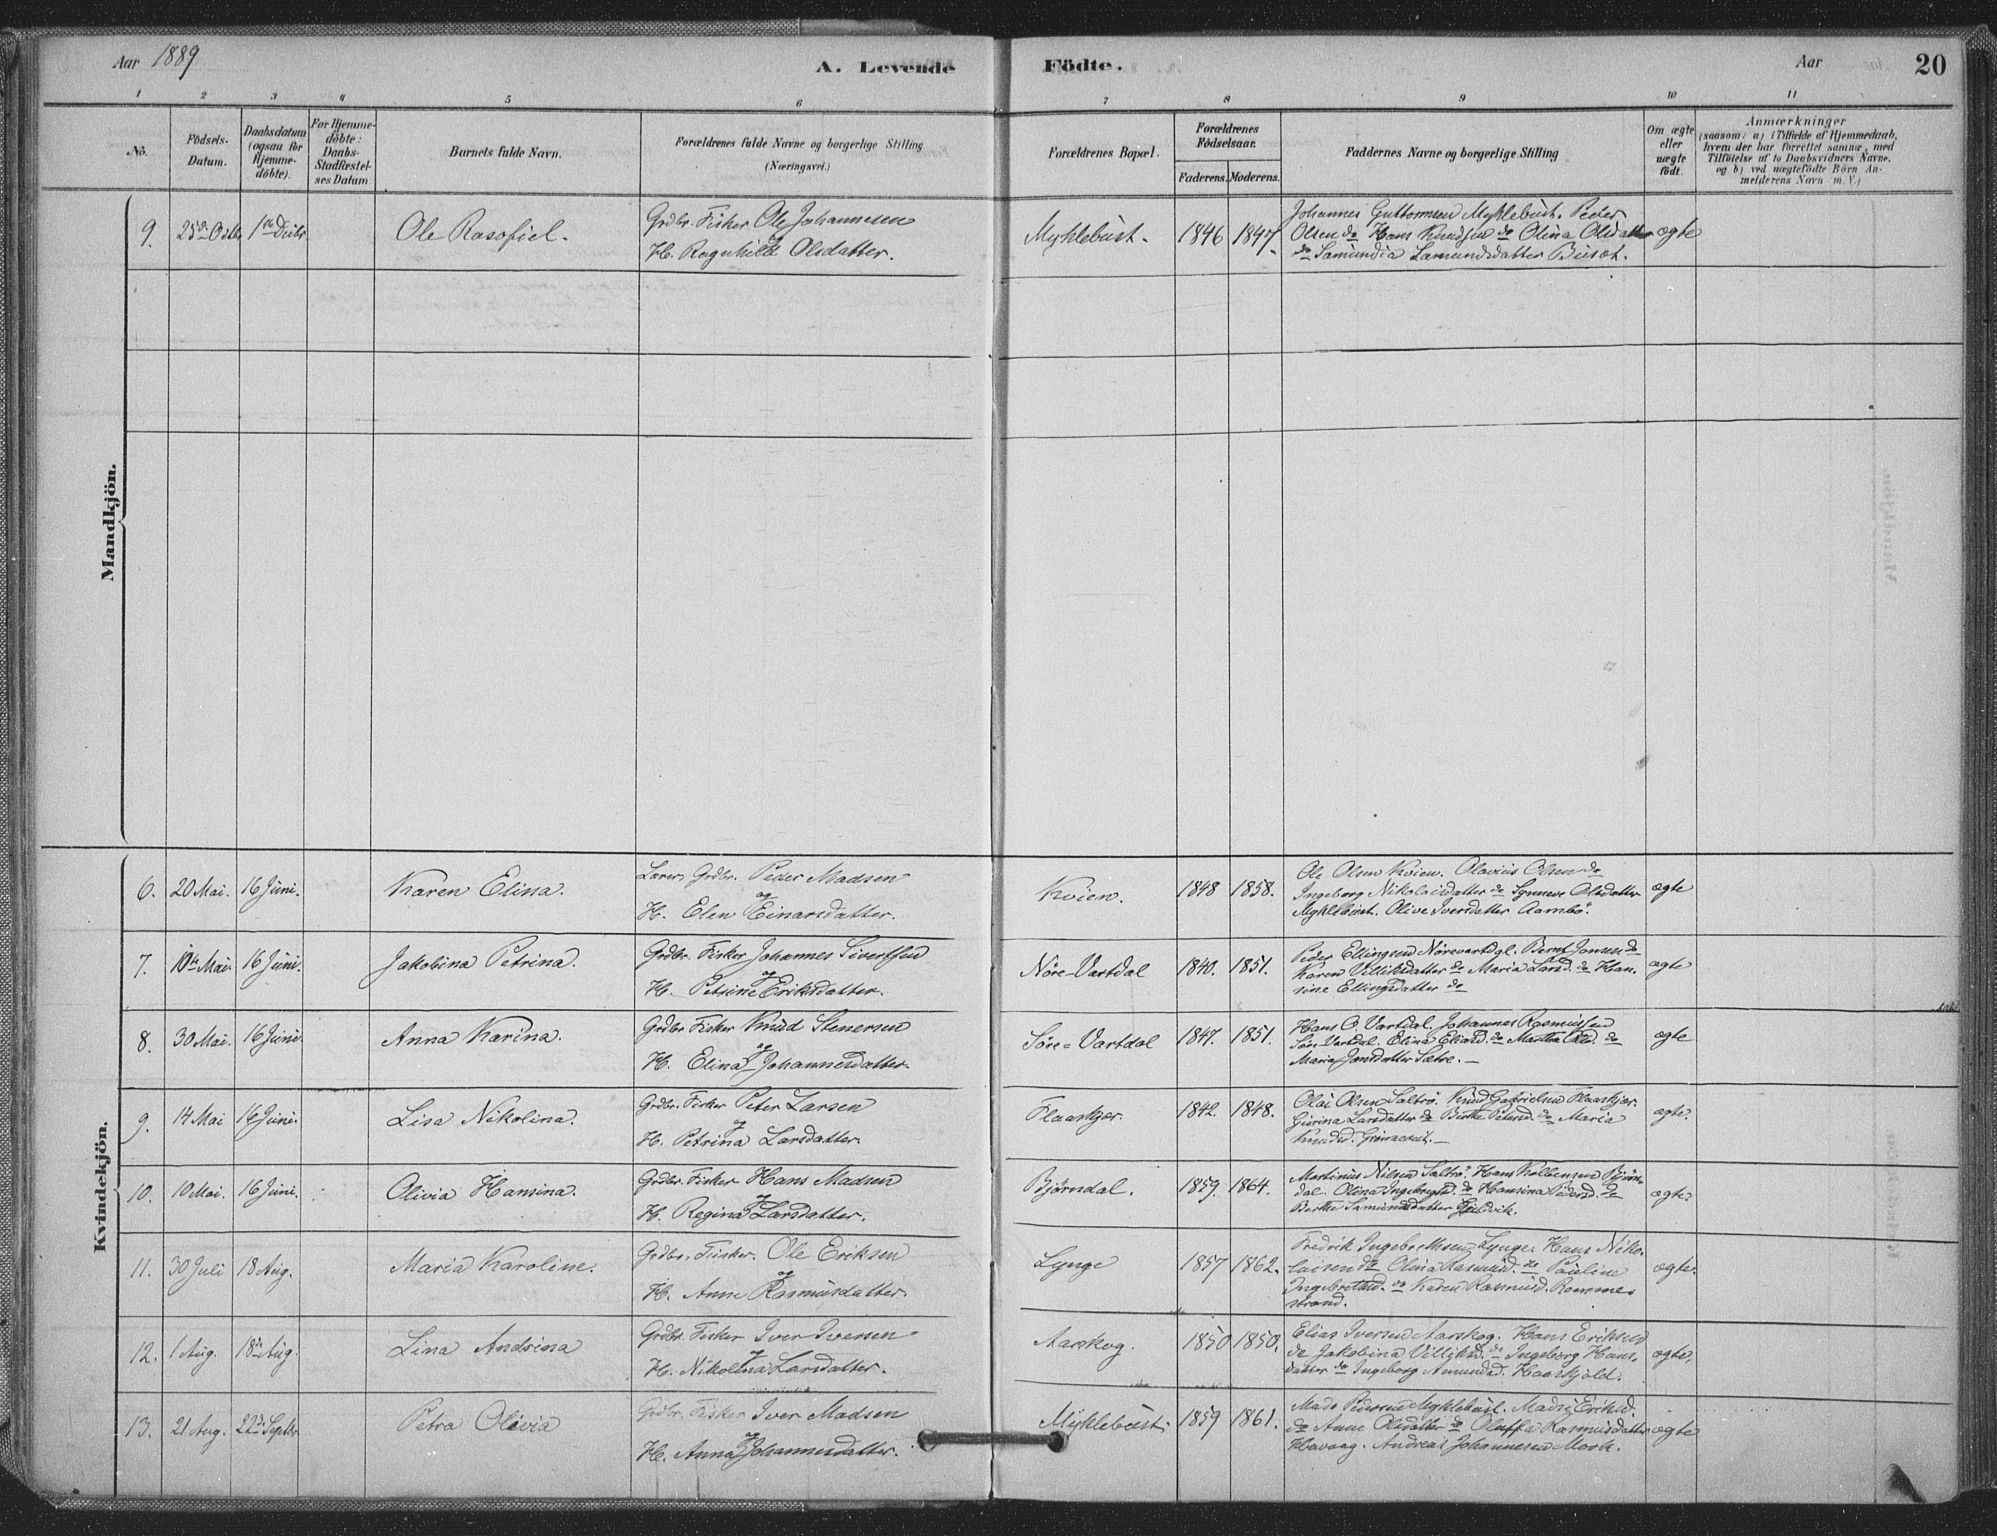 Aar 1889 A. Levende Födte. Aar 20
1 2 3 4 5 6 7 8 9 10 11
No.
Födsels-
Datum.
Daabsdatum
(ogsaa for
Hjemme-
döbte).
For Hjemme-
döbte:
Daabs-
Stadfæstel-
ses Datum
Barnets fulde Navn.
Forældrenes fulde Navne og borgerlige Stilling
(Næringsvei.)
Forældrenes Bopæl.
Forældrenes
Födselsaar.
Faderens. Moderens.
Faddernes Navne og borgerlige Stilling
Om ægte
eller
uægte
födt.
Anmærkninger
(saasom: a) i Tilfælde af Hjemmedaab,
hvem der har forrettet samme, med
Tilföielse af to Daabsvidners Navne,
og b) ved uægtefödte Börn An-
melderens Navn m. V.)
Mandkjön.
9. 25de Octbr 1ste Decbr Ole Rasofiel.
Grdbr. Fisker Ole Johannesen
og
H. Ragnhild Olsdatter.
Myklebust. 1846 1847.
Johannes Guttormsen Myklebust. Peder
Olsen do Hans Knudsen do Olina Olsdatter
do Samundia Samundsdatter
ægte
Kvindekjön.
6. 20 Mai. 16 Juni. Karen Elina.
Lærer, Grdbr. Peder Madsen
og
H. Elen Einarsdatter.
Kvien. 1848 1858.
Ole Olsen Kvien. Olavius Olsen do
Ingeborg Nikolaisdatter do Synneve Olsdatter
Myklebust. Olive Iversdatter Aambö.
ægte
7. 10de Mai. 16 Juni. Jakobina Petrina.
Grdbr. Fisker Johannes Sivertsen
og
H. Petrine Eriksdatter.
Nöre-Vartdal 1840. 1851.
Peder Ellingsen Nörevartdal. Bernt Jonsen do
Karen Villiksdatter do Maria Larsd. do Han-
sine Ellingsdatter do
ægte
8. 30 Mai. 16 Juni. Anna Karina.
Grdbr Fisker Knud Stenersen
og
H. Elina Johannesdatter.
Söre-Vartdal 1847. 1851.
Hans O. Vartdal. Johannes Rasmussen
Söre Vartdal. Elina Eliasd. do Martha Olsd. do
Maria Jansdatter Sætre.
ægte
9. 14 Mai 16 Juni. Lisa Nikolina.
Grdbr. Fisker Peter Larsen
og
H. Petrina Larsdatter.
Flaaskjer. 1842. 1848.
Olai Olsen Saltrö. Knud Gabrielsen Flaaskjer.
Gurina Larsdatter do Berthe Petersd. do Maria
Knudsd.
ægte.
10. 10 Mai. 16 Juni. Olivia Hansina.
Grdbr. Fisker Hans Madsen
og
H. Regina Larsdatter.
Björndal. 1859. 1864.
Martinus Nilsen Saltrö. Hans Kolbensen Björn-
dal. Olina Ingebrigtsd. do Hansina Pedersd. do
Berthe Samundsdatter
ægte.
11. 30 Juli 18 Aug. Maria Karoline.
Grdbr. Fisker. Ole Eriksen
og
H. Anne Rasmusdatter.
Lynge 1857 1862.
Fredrik Ingebrethsen Lynge. Hans Niko-
laisen do Olina Rasmusd. do Pauline
Ingebrethsd. do Karen Rasmusd. Rommes
strand.
ægte.
12. 1 Aug. 18de Aug. Lina Andrina
Grdbr. Fisker Iver Iversen
og
H. Nikolina Larsdatter.
Aarskog. 1850 1850.
Elias Iversen Aarskog. Hans Eriksen
do Jakobina Villiksd. do Ingeborg Hans-
datter do Ingeborg Amundsd. Haaskjold.
ægte.
13. 21 Aug. 22de Septbr. Petra Olivia
Grdbr. Fisker Iver Madsen
og
H. Anna Johannesdatter.
Myklebust. 1859 1861.
Mads Pedersen Myklebust. Madsi Eriksd.
do Anne Olsdatter do Oluffa Rasmusdatter
Havaag. Andreas Johannesen Mork.
ægte